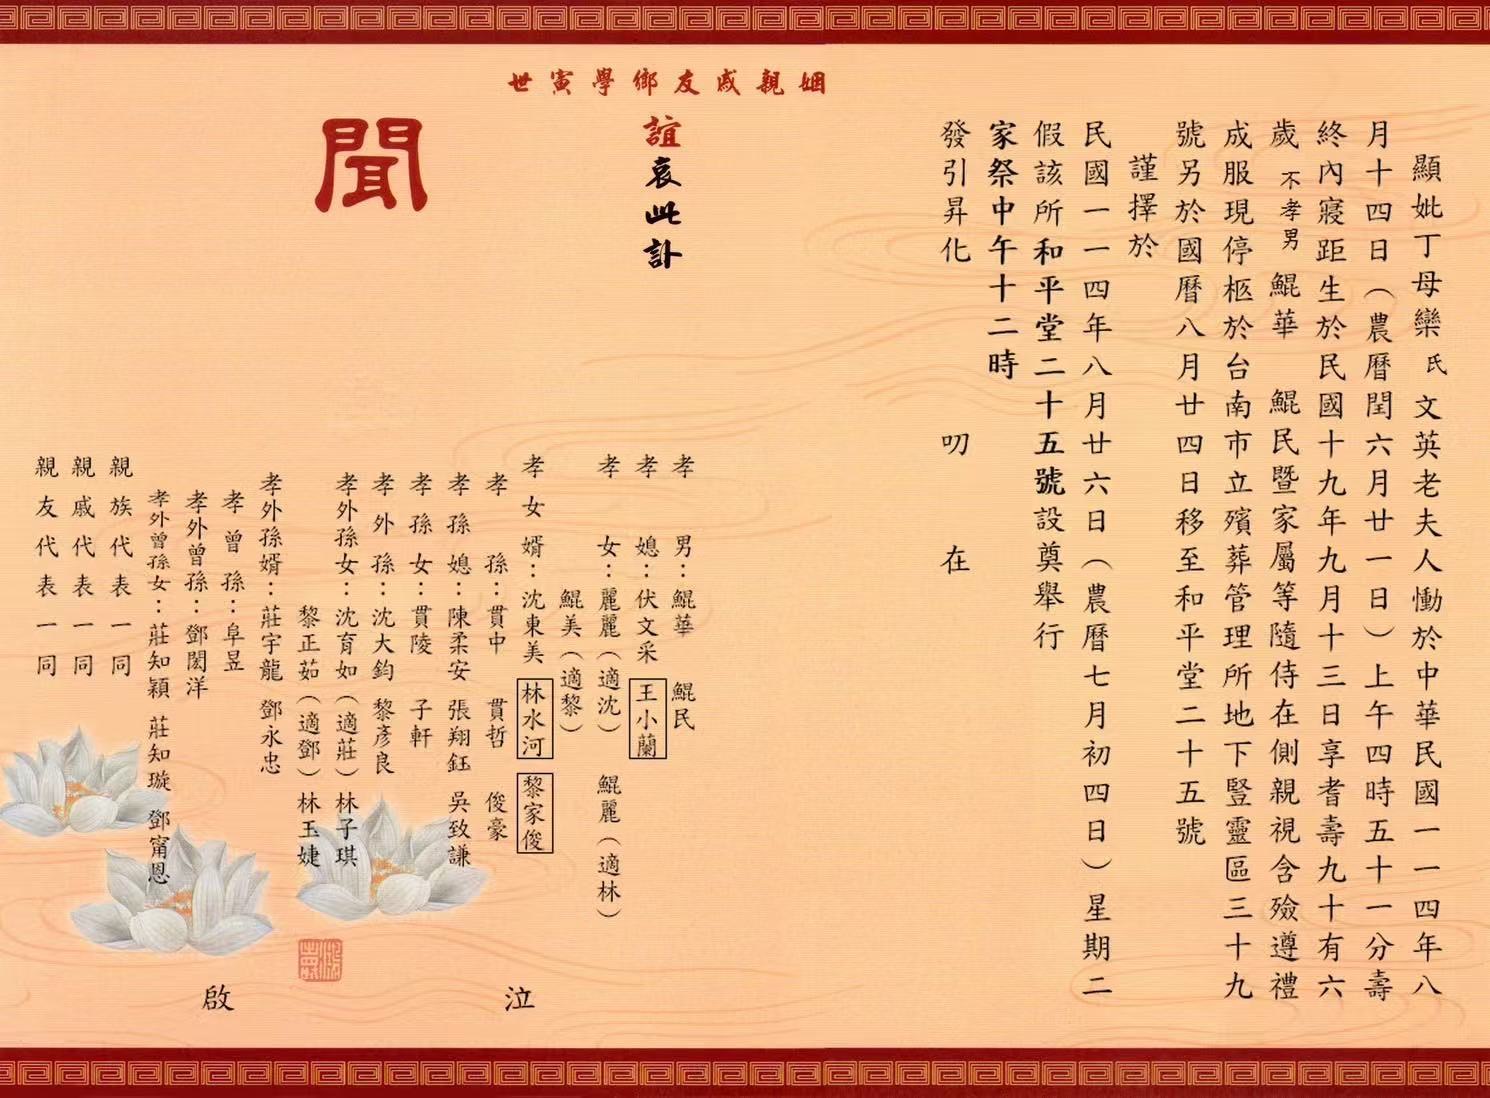 顯妣丁母欒氏文英老夫人慟於中華民國一一四年八
月十四日（農曆閏六月廿一日）上午四時五十一分壽
終內寢距生於民國十九年九月十三日享耆壽九十有六
歲不孝男鯤華 鯤民暨家屬等隨侍在側親視含殮遵禮
成服現停柩於台南市立殯葬管理所地下豎靈區三十九
號另於國曆八月廿四日移至和平堂二十五號
謹擇於
民國一一四年八月廿六日（農曆七月初四日）星期二
假該所和平堂二十五號設奠舉行
家祭中午十二時
發引昇化 叨 在
姻親戚友鄉學寅世
誼哀此訃
聞
孝 男：鯤華 鯤民
孝 媳：伏文采 王小蘭
孝 女：麗麗（適沈） 鯤麗（適林）
鯤美（適黎）
孝女婿：沈東美 林水河 黎家俊
孝 孫：貫中 貫哲 俊豪
孝孫媳：陳柔安 張翔鈺 吳致謙
孝孫女：貫陵 子軒
孝外孫：沈大鈞 黎彥良
孝外孫女：沈育如（適莊） 林子琪
黎正茹（適鄧） 林玉婕
孝外孫婿：莊宇龍 鄧永忠
孝曾孫：阜昱
孝外曾孫：鄧閎洋
孝外曾孫女：莊知穎 莊知璇 鄧甯恩
親族代表一同
親戚代表一同
親友代表一同
泣 啟